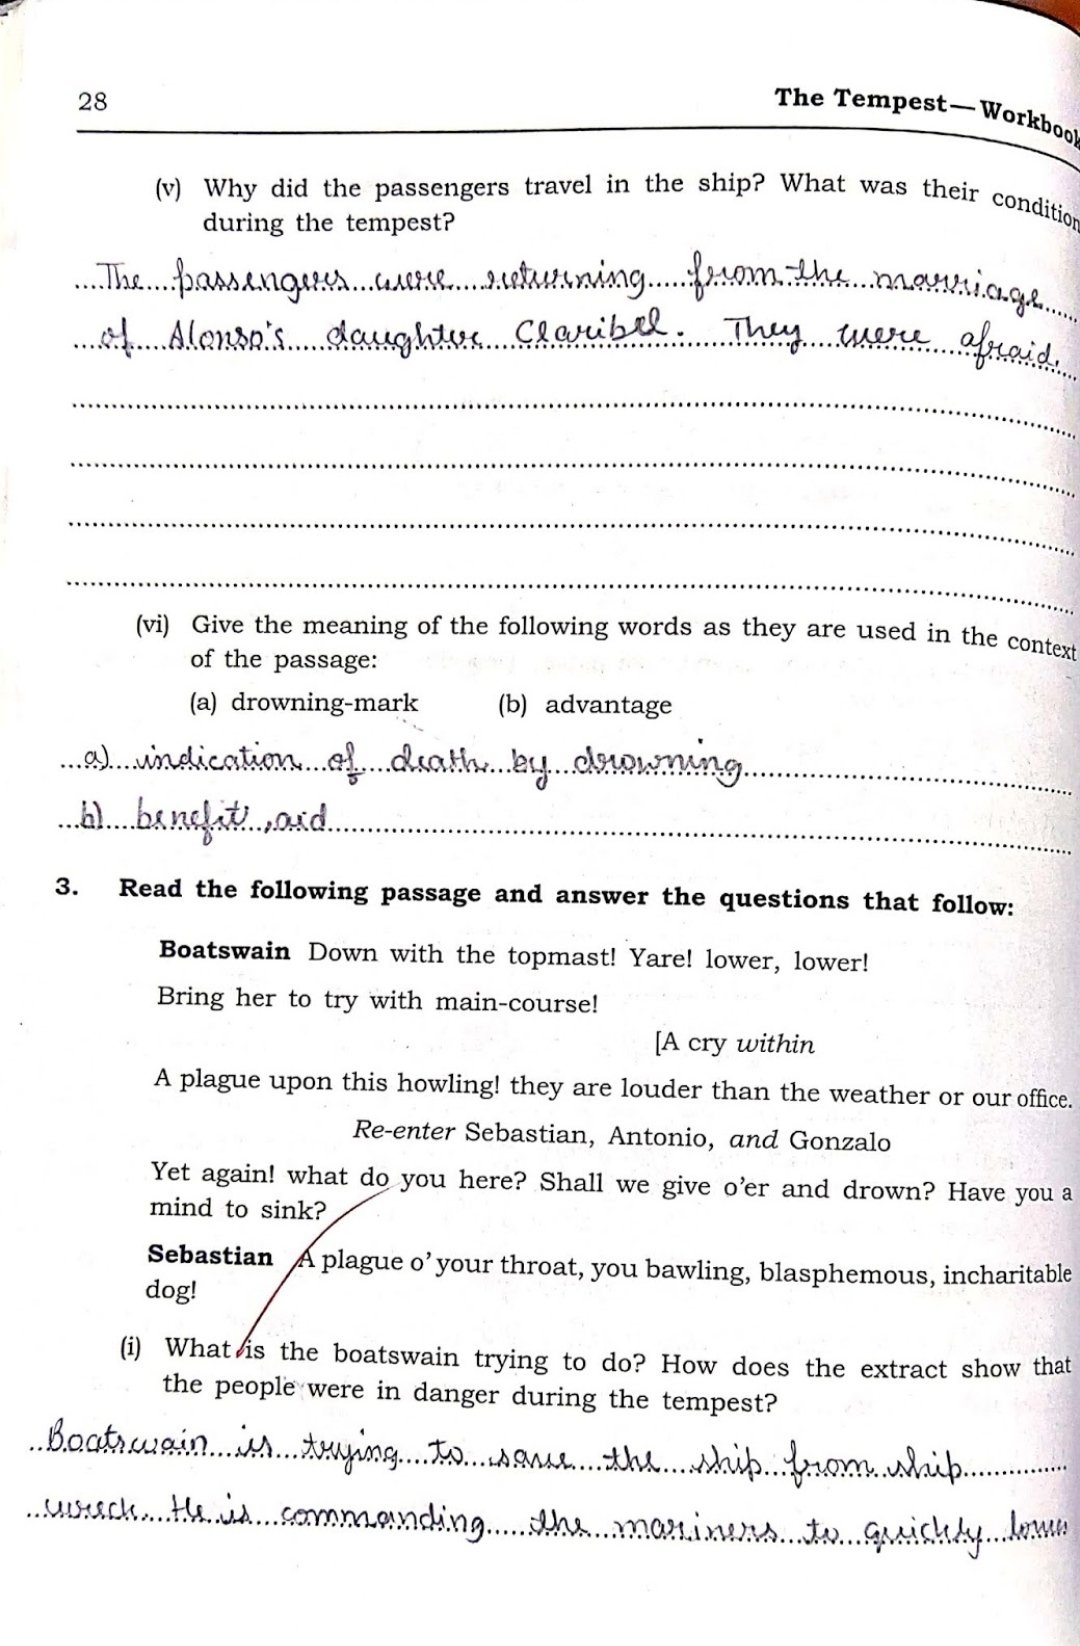 28
The Tempest—Workbook
(v) Why did the passengers travel in the ship? What was their condition
during the tempest?
The passengers were returning from the marriage
of Alonso's daughter Claribel. They were afraid.
(vi) Give the meaning of the following words as they are used in the context
of the passage:
(a) drowning-mark (b) advantage
a) indication of death by drowning
b) benefit, aid
3. Read the following passage and answer the questions that follow:
Boatswain Down with the topmast! Yare! lower, lower!
Bring her to try with main-course!
[A cry within
A plague upon this howling! they are louder than the weather or our office.
Re-enter Sebastian, Antonio, and Gonzalo
Yet again! what do you here? Shall we give o'er and drown? Have you a
mind to sink?
Sebastian A plague o' your throat, you bawling, blasphemous, incharitable
dog!
(i) What is the boatswain trying to do? How does the extract show that
the people were in danger during the tempest?
Boatswain is trying to save the ship from ship
wreck. He is commanding the mariners to quickly lower